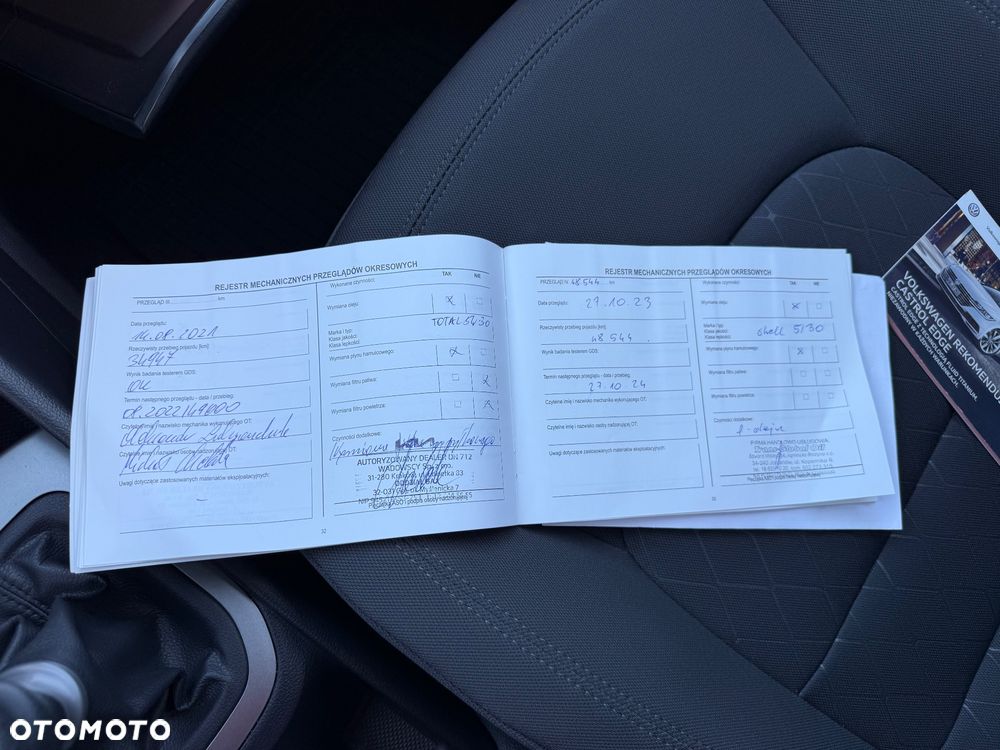 REJESTR MECHANICZNYCH PRZEGLĄDÓW OKRESOWYCH
PRZEGLĄD nr km
Data przeglądu:
14.08.2021
Rzeczywisty przebieg pojazdu [km]:
34947
Wynik badania testerem GDS:
OK
Termin następnego przeglądu - data / przebieg:
08.2022/49000
Czytelne imię i nazwisko mechanika wykonującego OT:
Czytelne imię i nazwisko osoby nadzorującej OT:
Uwagi dotyczące zastosowanych materiałów eksploatacyjnych:
–
Wykonane czynności: TAK NIE
Wymiana oleju: X
Marka / typ: TOTAL 5W30
Klasa jakości
Klasa lepkości
Wymiana płynu hamulcowego: X
Wymiana filtru paliwa: X
Wymiana filtru powietrza: X
Czynności dodatkowe:
AUTORYZOWANY DEALER DU 712
WADOWSCY Sp. z o.o.
32
REJESTR MECHANICZNYCH PRZEGLĄDÓW OKRESOWYCH
PRZEGLĄD N. 48 544 km
Data przeglądu: 27.10.23
Rzeczywisty przebieg pojazdu [km]
48 544.
Wynik badania testerem GDS:
Termin następnego przeglądu - data / przebieg:
27.10.24
Czytelne imię i nazwisko mechanika wykonującego OT:
Czytelne imię i nazwisko osoby nadzorującej OT:
Uwagi dotyczące zastosowanych materiałów eksploatacyjnych:
Wykonane czynności: TAK NIE
Wymiana oleju: X
Marka / typ: shell 5/30
Klasa jakości
Klasa lepkości
Wymiana płynu hamulcowego: X
Wymiana filtru paliwa:
Wymiana filtru powietrza:
Czynności dodatkowe:
f-oleju
FIRMA HANDLOWO-USŁUGOWA
Trans-Global Oil
33
VOLKSWAGEN REKOMENDUJE
CASTROL EDGE
CASTROL EDGE Z TECHNOLOGIĄ FLUID TITANIUM.
NIEZAWODNY W KAŻDYCH WARUNKACH.
OTOMOTO